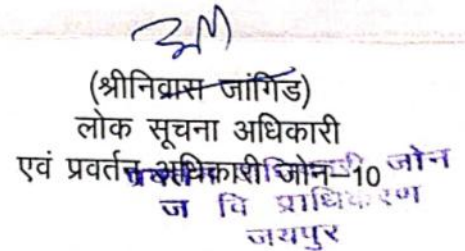 (श्रीनिवास जांगिड)
लोक सूचना अधिकारी
एवं प्रवर्तन अधिकारी जोन–10
जोन
ज वि प्राधिकरण
जयपुर